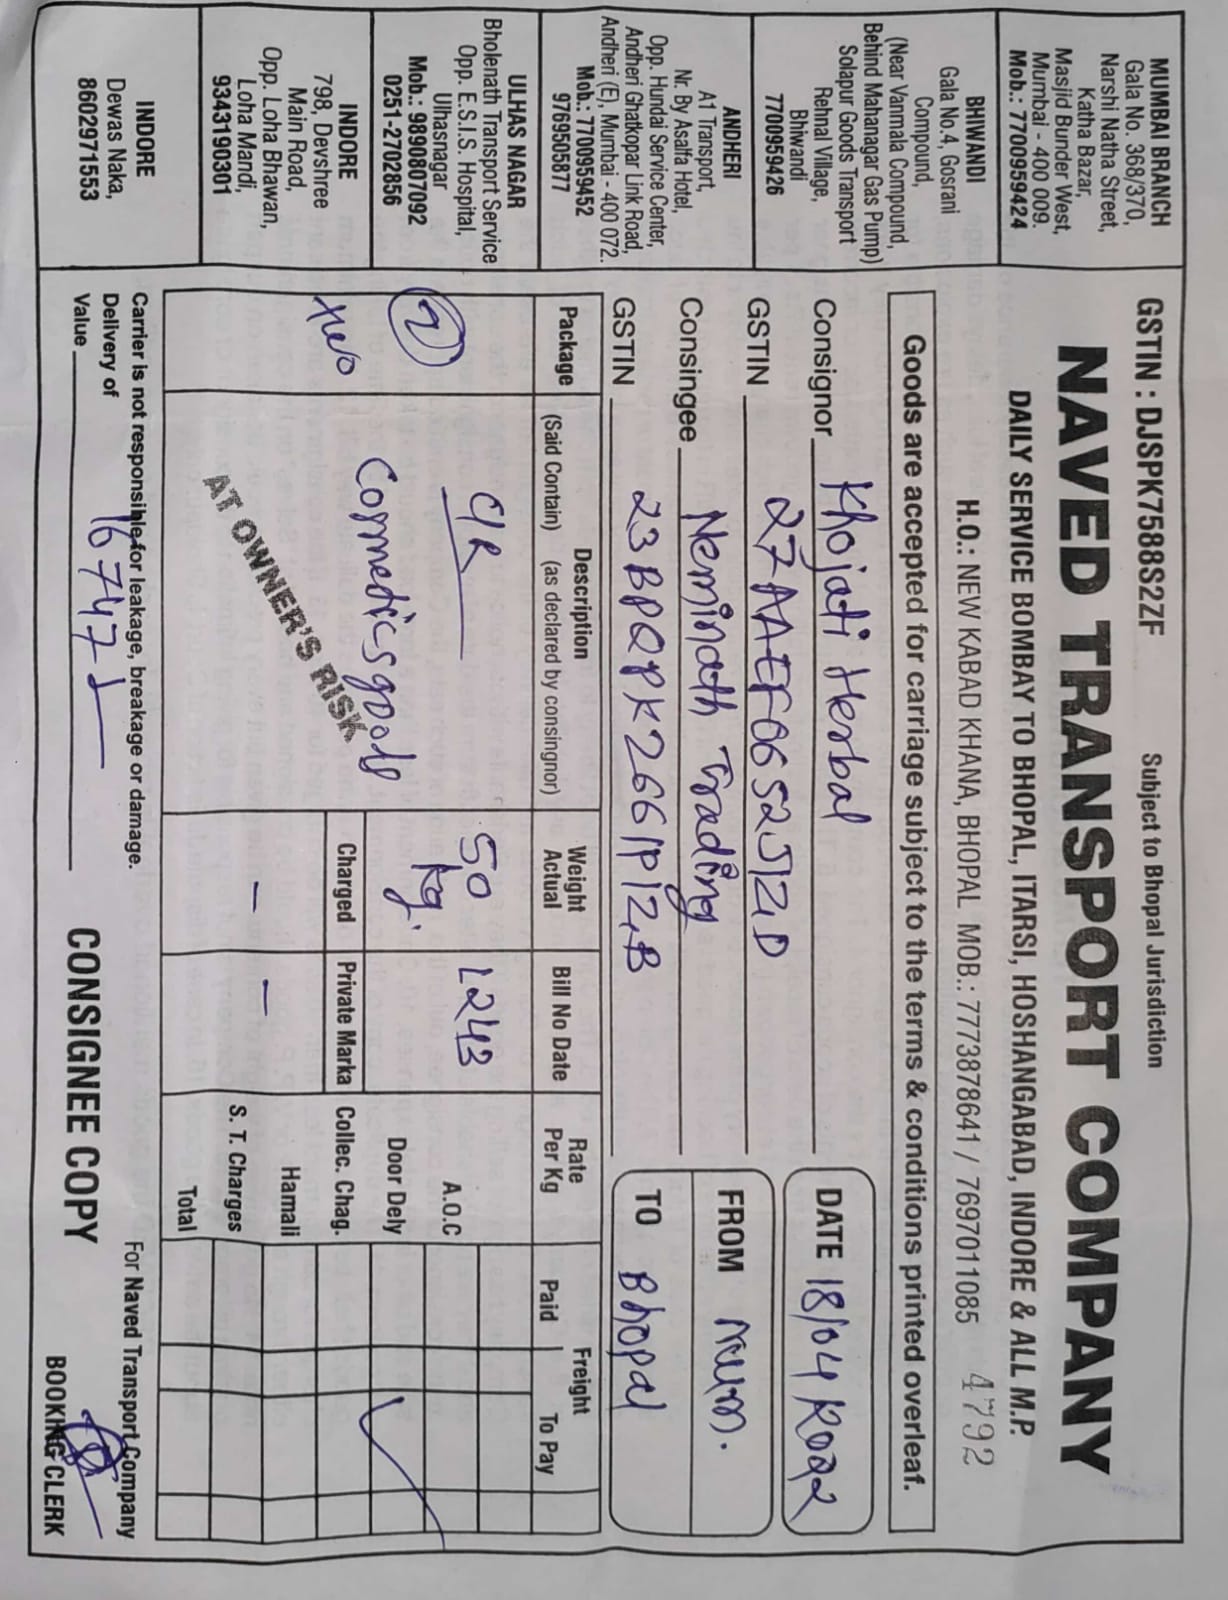 GSTIN : DJSPK7588S2ZF
Subject to Bhopal Jurisdiction
NAVED TRANSPORT COMPANY
DAILY SERVICE BOMBAY TO BHOPAL, ITARSI, HOSHANGABAD, INDORE & ALL M.P.
H.O.: NEW KABAD KHANA, BHOPAL MOB.: 7773878641 / 7697011085
4792
Goods are accepted for carriage subject to the terms & conditions printed overleaf.
MUMBAI BRANCH
Gala No. 368/370,
Narshi Natha Street,
Katha Bazar,
Masjid Bunder West,
Mumbai - 400 009.
Mob.: 7700959424
BHIWANDI
Gala No.4, Gosrani
Compound,
(Near Vanmala Compound,
Behind Mahanagar Gas Pump)
Solapur Goods Transport
Rehnal Village,
Bhiwandi
7700959426
ANDHERI
A1 Transport,
Nr. By Asalfa Hotel,
Opp. Hundai Service Center,
Andheri Ghatkopar Link Road,
Andheri (E), Mumbai - 400 072.
Mob.: 7700959452
9769505877
ULHAS NAGAR
Bholenath Transport Service
Opp. E.S.I.S. Hospital,
Ulhasnagar
Mob.: 9890807092
0251-2702856
INDORE
798, Devshree
Main Road,
Opp. Loha Bhawan,
Loha Mandi,
9343190301
INDORE
Dewas Naka,
8602971553
Consignor Khojati Herbal
GSTIN 27AAEF0652J1Z1D
Consingee Neminath Trading
GSTIN 23BPQPK2661P1Z,B
DATE 18/04
FROM mum.
TO Bhopal
Package
Description
(Said Contain) (as declared by consingnor)
Weight
Actual
Bill No Date
Rate
Per Kg
Freight
Paid
To Pay
2
two
C/R
Cormedics goods
AT OWNER'S RISK
50
kg.
L243
Charged
Private Marka
-
-
A.O.C
Door Dely
Collec. Chag.
Hamali
S. T. Charges
Total
Carrier is not responsible for leakage, breakage or damage.
Delivery of
Value 16747
CONSIGNEE COPY
For Naved Transport Company
BOOKING CLERK